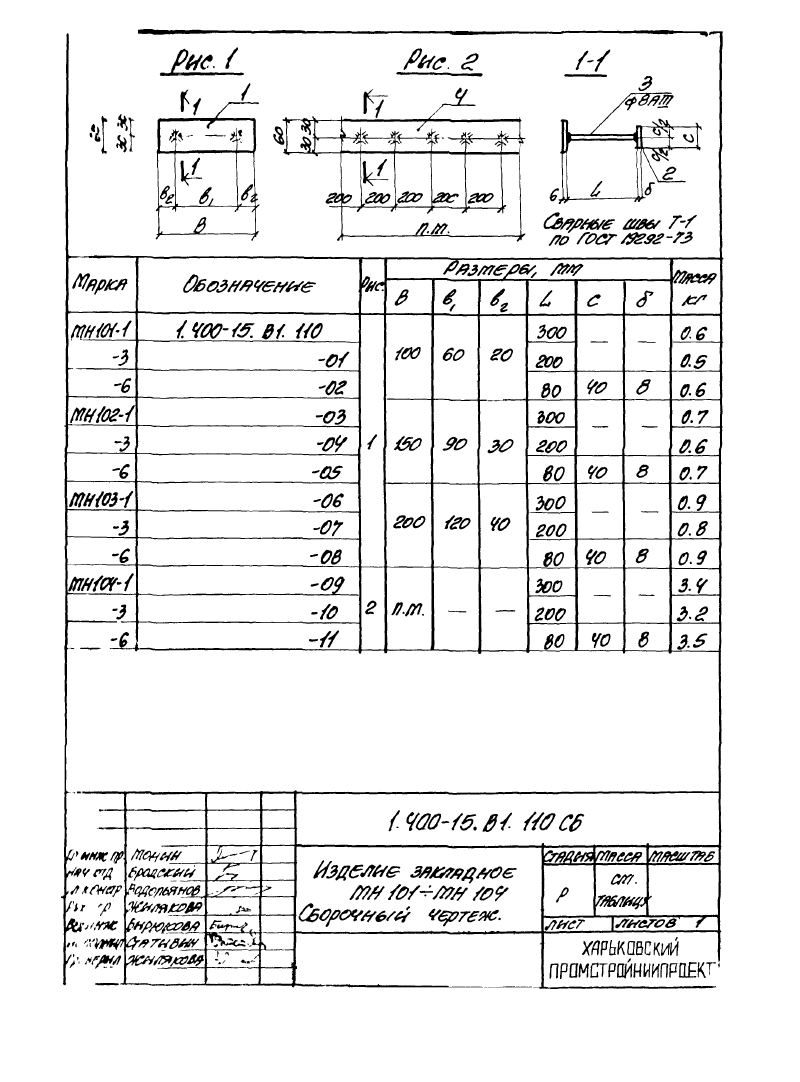 Рис. 1
Рис. 2
1-1
1
1
1
4
1
1
3
ф8АIII
2
60
30 30
60
30 30
в2 в1 в2
В
200 200 200 200 200
п.м.
6 L δ
с/2 с/2
с
Сварные швы Т-1
по ГОСТ 19292-73
Марка Обозначение Рис. Размеры, мм Масса кг
В в1 в2 L с δ
МН101-1 1.400-15. В1. 110 1 100 60 20 300 — — 0.6
-3 -01 200 0.5
-6 -02 80 40 8 0.6
МН102-1 -03 150 90 30 300 — — 0.7
-3 -04 200 0.6
-6 -05 80 40 8 0.7
МН103-1 -06 200 120 40 300 — — 0.9
-3 -07 200 0.8
-6 -08 80 40 8 0.9
МН104-1 -09 2 п.м. — — 300 — — 3.4
-3 -10 200 3.2
-6 -11 80 40 8 3.5
1.400-15. В1. 110 СБ
инж. пр. Монин
нач. отд. Бродский
Водопьянов
Жилякова
Бирюкова
Статывин
Жилякова
Изделие закладное
МН 101÷МН 104
Сборочный чертеж.
Стадия Масса Масштаб
Р см. таблицу
Лист Листов 1
ХАРЬКОВСКИЙ
ПРОМСТРОЙНИИПРОЕКТ